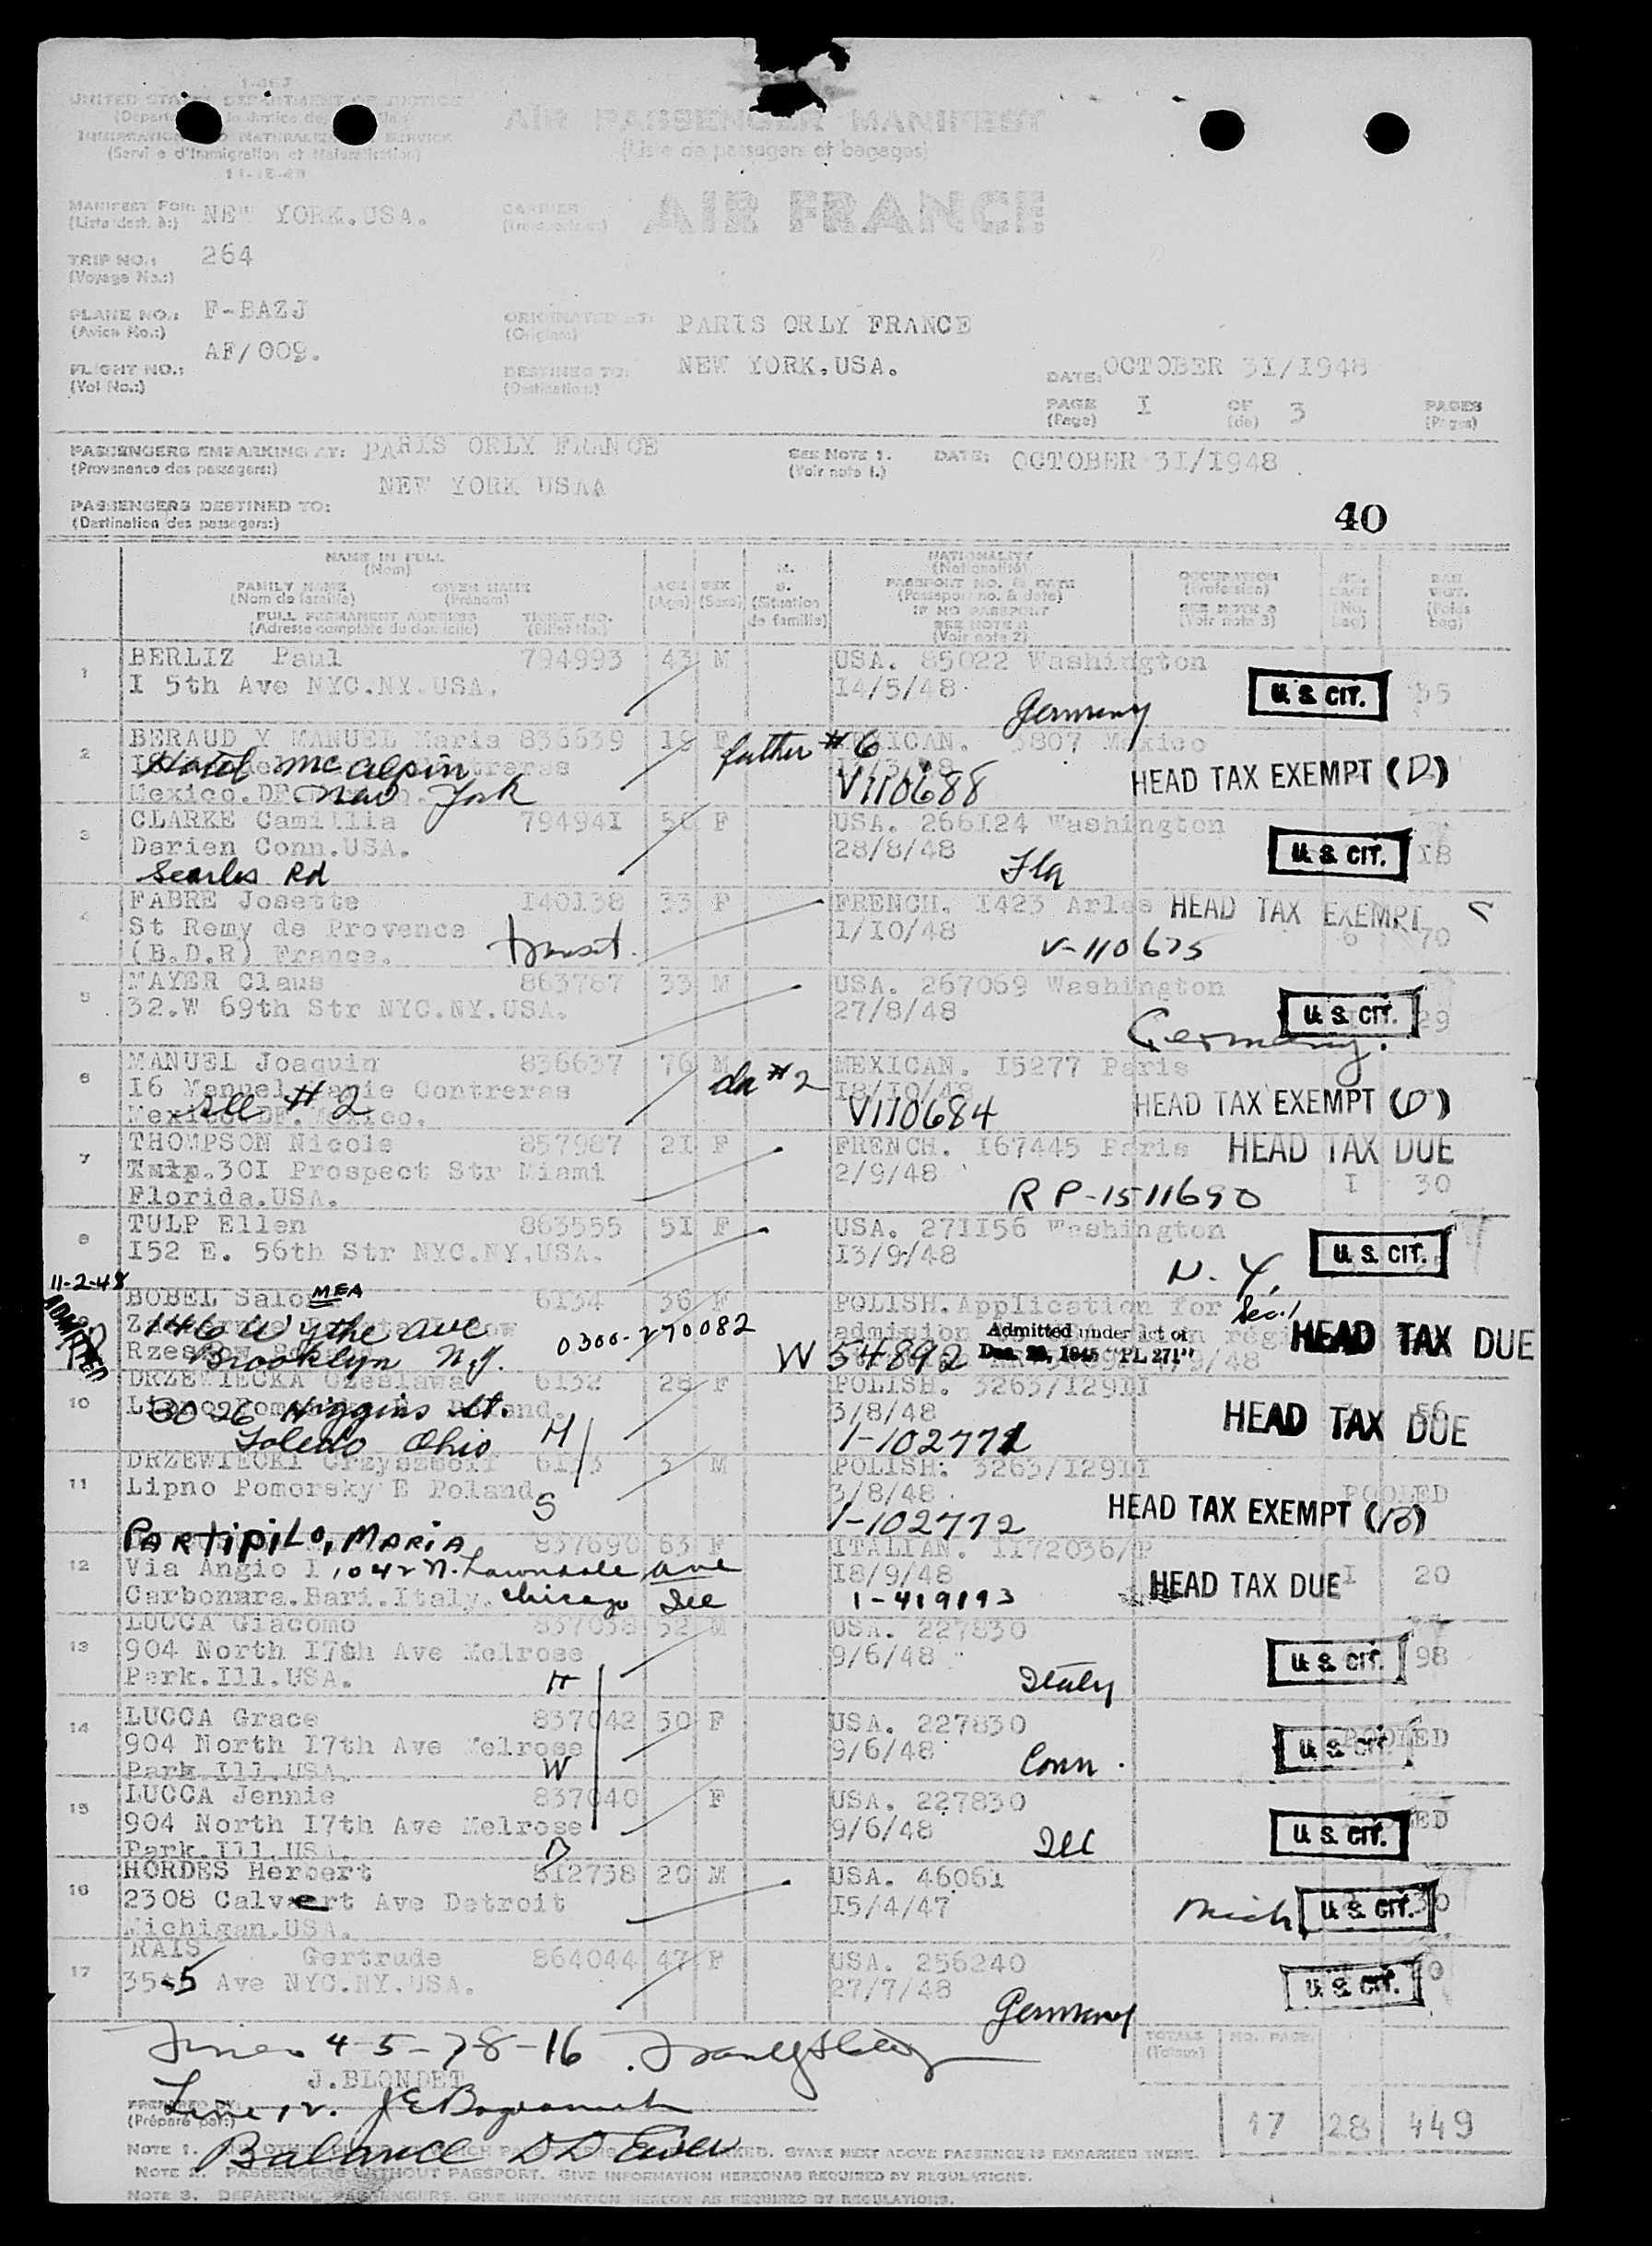 I-463
UNITED STATES DEPARTMENT OF JUSTICE
IMMIGRATION AND NATURALIZATION SERVICE
(Service d'Immigration et Naturalisation)
AIR PASSENGER MANIFEST
(Liste de passagers et bagages)
MANIFEST FOR: NEW YORK.USA.
(Liste dest. à:)
CARRIER AIR FRANCE
TRIP NO.: 264
(Voyage No.:)
PLANE NO.: F-BAZJ
(Avion No.:)
ORIGINATED AT: PARIS ORLY FRANCE
(Origine)
FLIGHT NO.: AF/009.
(Vol No.:)
DESTINED TO: NEW YORK.USA.
(Destination:)
DATE: OCTOBER 31/1948
PAGE I OF 3 PAGES
(Page) (de) (Pages)
PASSENGERS EMBARKING AT: PARIS ORLY FRANCE
(Provenance des passagers:)
SEE NOTE 1. DATE: OCTOBER 31/1948
(Voir note 1.)
NEW YORK USAA
PASSENGERS DESTINED TO:
(Destination des passagers:)
40
NAME IN FULL
(Nom)
FAMILY NAME GIVEN NAME
(Nom de famille) (Prénom)
FULL PERMANENT ADDRESS TICKET NO.
(Adresse complète du domicile) (Billet No.)
AGE SEX
(Age) (Sexe)
M.
S.
(Situation
de famille)
NATIONALITY
(Nationalité)
PASSPORT NO. & DATE
(Passeport no. & date)
IF NO PASSPORT
SEE NOTE 2
(Voir note 2)
OCCUPATION
(Profession)
SEE NOTE 3
(Voir note 3)
1 BERLIZ Paul 794993 43 M USA. 85022 Washington
I 5th Ave NYC.NY.USA. 14/5/48 U. S. CIT. 55
Germany
2 BERAUD Y MANUEL Maria 836639 F father #6 MEXICAN. 3807 Mexico
Hotel McAlpin
New York V110688 HEAD TAX EXEMPT (D)
3 CLARKE Camillia 794941 F USA. 266124 Washington
Darien Conn.USA. 28/8/48 U. S. CIT. 18
Searles Rd Fla
4 FABRE Josette 140138 33 F FRENCH. 1423 Arles HEAD TAX EXEMPT
St Remy de Provence 1/10/48 6 70
(B.D.R) France. transit. V-110675
5 MAYER Claus 863787 33 M USA. 267069 Washington
32.W 69th Str NYC.NY.USA. 27/8/48 U. S. CIT. 29
Germany.
6 MANUEL Joaquin 836637 76 M da #2 MEXICAN. 15277 Paris
16 Manuel Marie Contreras 18/10/48
Mexico.DF.Mexico. See #2 V110684 HEAD TAX EXEMPT (D)
7 THOMPSON Nicole 857987 21 F FRENCH. 167445 Paris HEAD TAX DUE
301 Prospect Str Miami 2/9/48 I 30
Florida.USA. RP-1511690
8 TULP Ellen 863555 51 F USA. 271156 Washington
152 E. 56th Str NYC.NY.USA. 13/9/48 U. S. CIT.
N.Y.
11-2-48 ADMITTED
BOBEL Salo MEA 6134 36 F POLISH. Application for
146 Wythe Ave 0300-270082 Admitted under act of HEAD TAX DUE
Brooklyn N.Y. W 54892 Dec. 28, 1945 "PL 271"
10 DRZEWIECKA Czeslawa 6132 28 F POLISH. 3263/129II
3026 Higgins St. 3/8/48 HEAD TAX DUE 56
Toledo Ohio M 1-102771
11 DRZEWIECKI 6133 3 M POLISH. 3263/129II
Lipno Pomorsky E Poland 3/8/48 POOLED
S 1-102772 HEAD TAX EXEMPT (B)
12 PARTIPILO, MARIA 837690 63 F ITALIAN. 1172036/P
Via Angio I 1042 N. Lawndale Ave 18/9/48 HEAD TAX DUE I 20
Carbonara.Bari.Italy. Chicago Ill 1-419193
13 LUCCA Giacomo 837038 52 M USA. 227830
904 North 17th Ave Melrose 9/6/48 U. S. CIT. 98
Park.Ill.USA. H Italy
14 LUCCA Grace 837042 50 F USA. 227830
904 North 17th Ave Melrose 9/6/48 U. S. CIT. POOLED
Park.Ill.USA. W Conn.
15 LUCCA Jennie 837040 F USA. 227830
904 North 17th Ave Melrose 9/6/48 U. S. CIT.
Park.Ill.USA. D Ill
16 HORDES Herbert 812738 20 M USA. 46061
2308 Calvert Ave Detroit 15/4/47 Mich U. S. CIT.
Michigan.USA.
17 RAIS Gertrude 864044 47 F USA. 256240
35 5 Ave NYC.NY.USA. 27/7/48 U. S. CIT.
Germany
Lines 4-5-7-8-16.
J.BLONDET
PREPARED BY
(Préparé par:)
Line 12.
Balance
TOTALS NO. PASS.
(Totaux)
17 28 449
NOTE 1. STATE NEXT ABOVE PASSENGERS EMBARKED THERE.
NOTE 2. PASSENGERS WITHOUT PASSPORT. GIVE INFORMATION HEREON AS REQUIRED BY REGULATIONS.
NOTE 3. DEPARTING PASSENGERS. GIVE INFORMATION HEREON AS REQUIRED BY REGULATIONS.